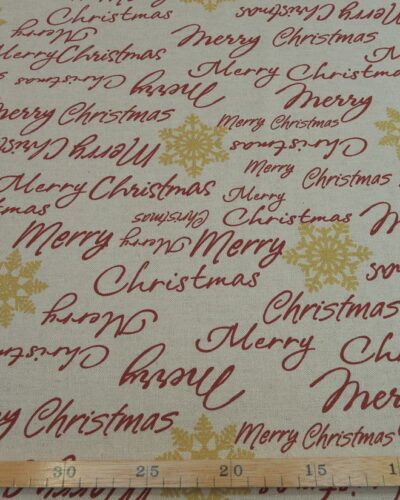 Christmas
Merry Christmas
Merry Christmas
Merry Christmas
Christmas
Merry
Merry
Merry Christmas
Merry Christmas
Merry Christmas
Christmas
Merry Christmas
Merry Christmas
Merry
Christmas
Merry Merry Merry
Christmas
Christmas
Merry
Christmas
Merry
Christmas
Merry
Merry
Christmas
Merry Christmas
30 25 20 15